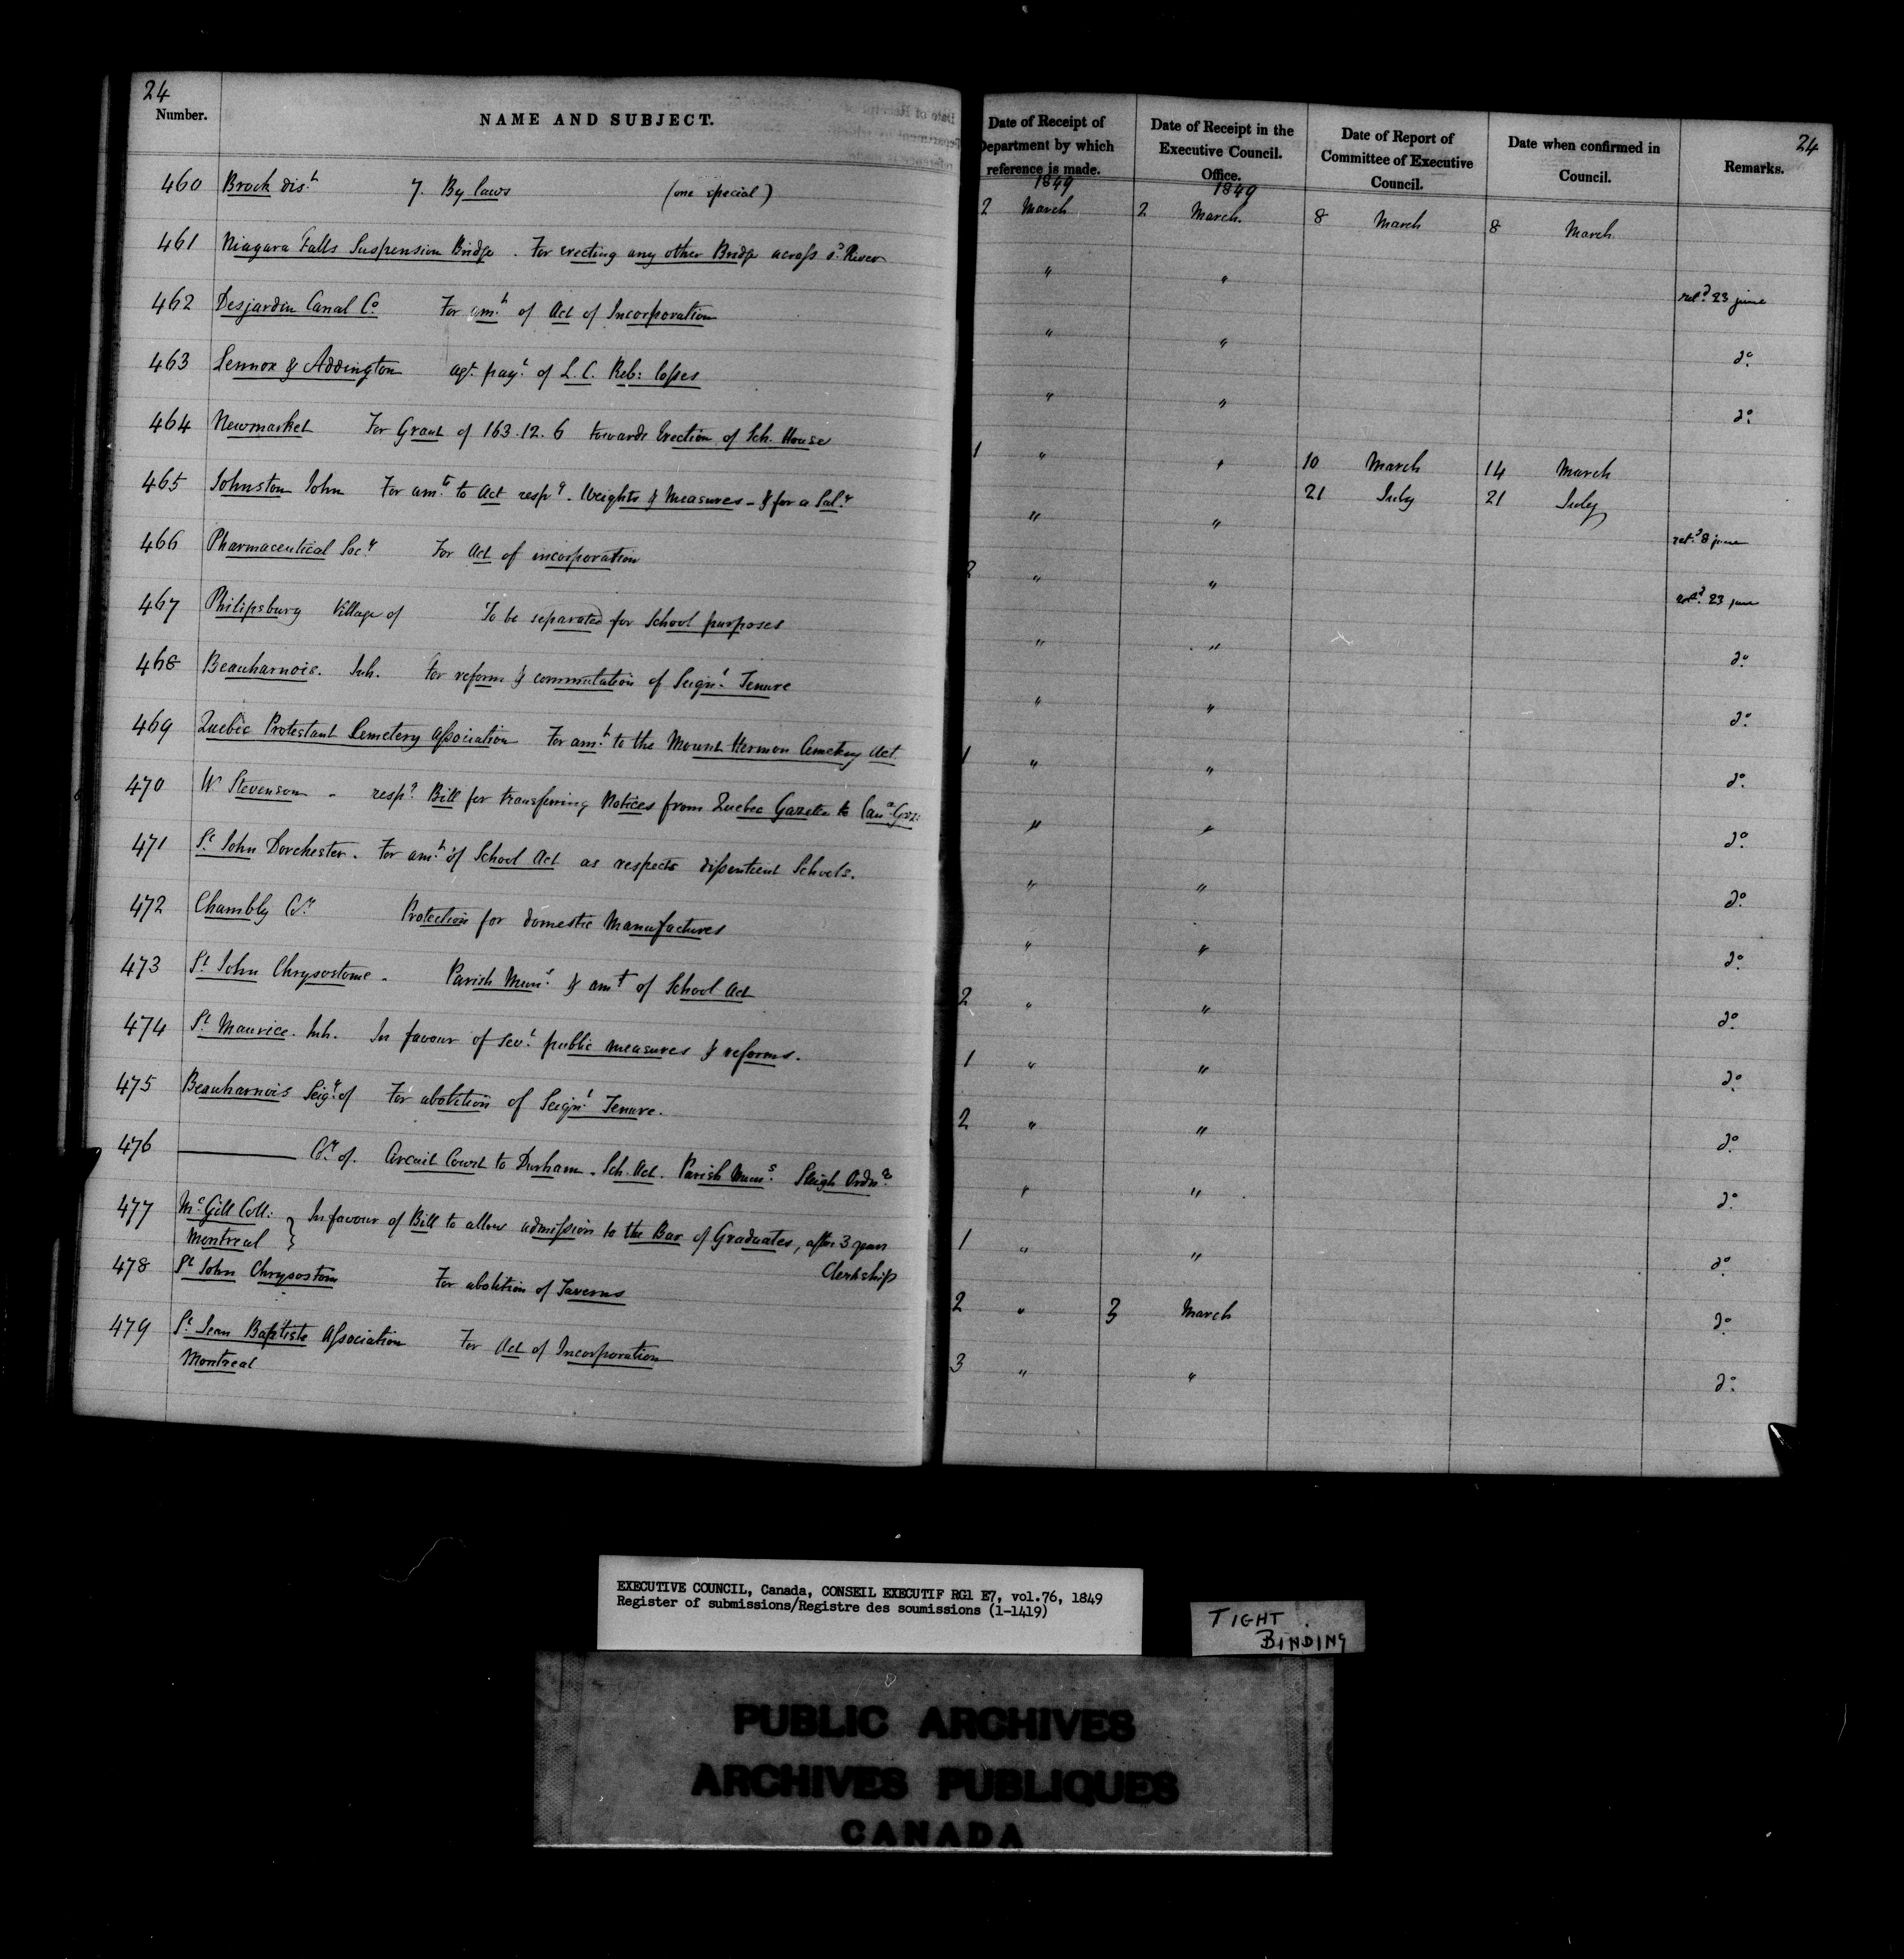 24
Number.
NAME AND SUBJECT.
460 Brock dis.t 7. By laws (one special)
461 Niagara Falls Suspension Bridge. For erecting any other Bridge across sd River
462 Desjardin Canal Co For am.t of Act of Incorporation
463 Lennox & Addington agt. pay.t of L. C. Reb: losses
464 Newmarket For Grant of 163.12.6 towards Erection of Sch. House
465 Johnston John For am.ts to Act resp.g Weights & Measures - & for a Sal.y
466 Pharmaceutical Soc.y For Act of incorporation
467 Philipsburg Village of To be separated for School purposes
468 Beauharnois. Inh. for reform & commutation of Seign.l Tenure
469 Quebec Protestant Cemetery Association For am.t to the Mount Hermon Cemetery Act
470 W Stevenson - resp.g Bill for transferring Notices from Quebec Gazette to Can.a Gaz:
471 St. John Dorchester. For am.t of School Act as respects dissentient Schools.
472 Chambly Co.y Protection for domestic Manufactures
473 St. John Chrysostome. Parish Mun.s & amt of School Act
474 St. Maurice. Inh. In favour of sev.l public measures & reforms.
475 Beauharnois Seig.y of For abolition of Seign.l Tenure.
476 ——— Co.y of. Circuit Court to Durham. Sch. Act. Parish Mun.s Sleigh Ordn.ce
477 McGill Coll: Montreal } In favour of Bill to allow admission to the Bar of Graduates, after 3 years
Clerkship
478 St John Chrysostom For abolition of Taverns
479 St. Jean Baptiste Association For Act of Incorporation
Montreal
24
Date of Receipt of Department by which reference is made.
Date of Receipt in the Executive Council. Office.
Date of Report of Committee of Executive Council.
Date when confirmed in Council.
Remarks.
1849 1849
2 March 2 March. 8 March 8 March.
" " ret.d 23 june
" " do.
" " do.
1 " " 10 March 14 March
21 July 21 July
" " ret.d 8 june
2 " " ret.d 23 june
" " do.
" " do.
1 " " do.
" " do.
" " do.
" " do.
2 " " do.
1 " " do.
2 " " do.
" " do.
1 " " do.
2 " 3 March do.
3 " " do.
EXECUTIVE COUNCIL, Canada, CONSEIL EXECUTIF RG1 E7, vol.76, 1849
Register of submissions/Registre des soumissions (1-1419)
TIGHT
BINDING
PUBLIC ARCHIVES
ARCHIVES PUBLIQUES
CANADA